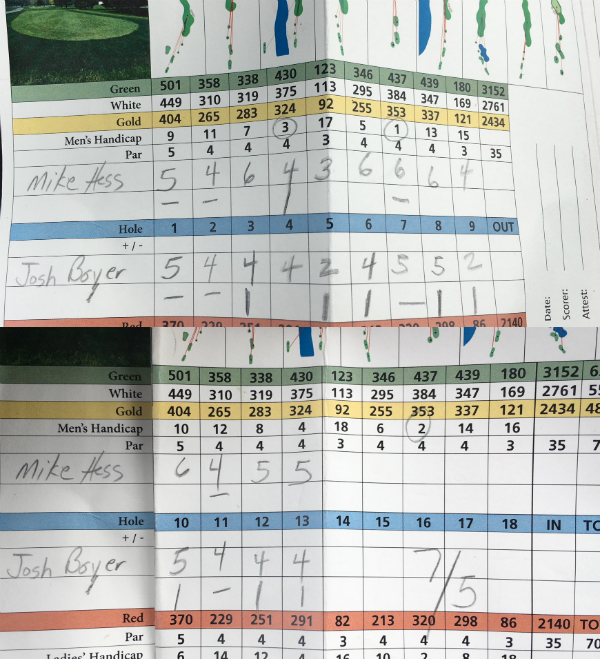 Green 501 358 338 430 123 346 437 439 180 3152
White 449 310 319 375 113 295 384 347 169 2761
Gold 404 265 283 324 92 255 353 337 121 2434
Men's Handicap 9 11 7 3 17 5 1 13 15
Par 5 4 4 4 3 4 4 4 3 35
Mike Hess 5 4 6 4 3 6 6 6 4
— — / —
Hole 1 2 3 4 5 6 7 8 9 OUT
+ / -
Josh Boyer 5 4 4 4 2 4 5 5 2
— — | | | — | |
Date:
Scorer:
Attest:
Red 370 229 86 2140
Green 501 358 338 430 123 346 437 439 180 3152
White 449 310 319 375 113 295 384 347 169 2761
Gold 404 265 283 324 92 255 353 337 121 2434
Men's Handicap 10 12 8 4 18 6 2 14 16
Par 5 4 4 4 3 4 4 4 3 35
Mike Hess 6 4 5 5
—
Hole 10 11 12 13 14 15 16 17 18 IN
+ / -
Josh Boyer 5 4 4 4 7/5
| — | |
Red 370 229 251 291 82 213 320 298 86 2140 TO
Par 5 4 4 4 3 4 4 4 3 35 70
Ladies' Handicap 6 14 12